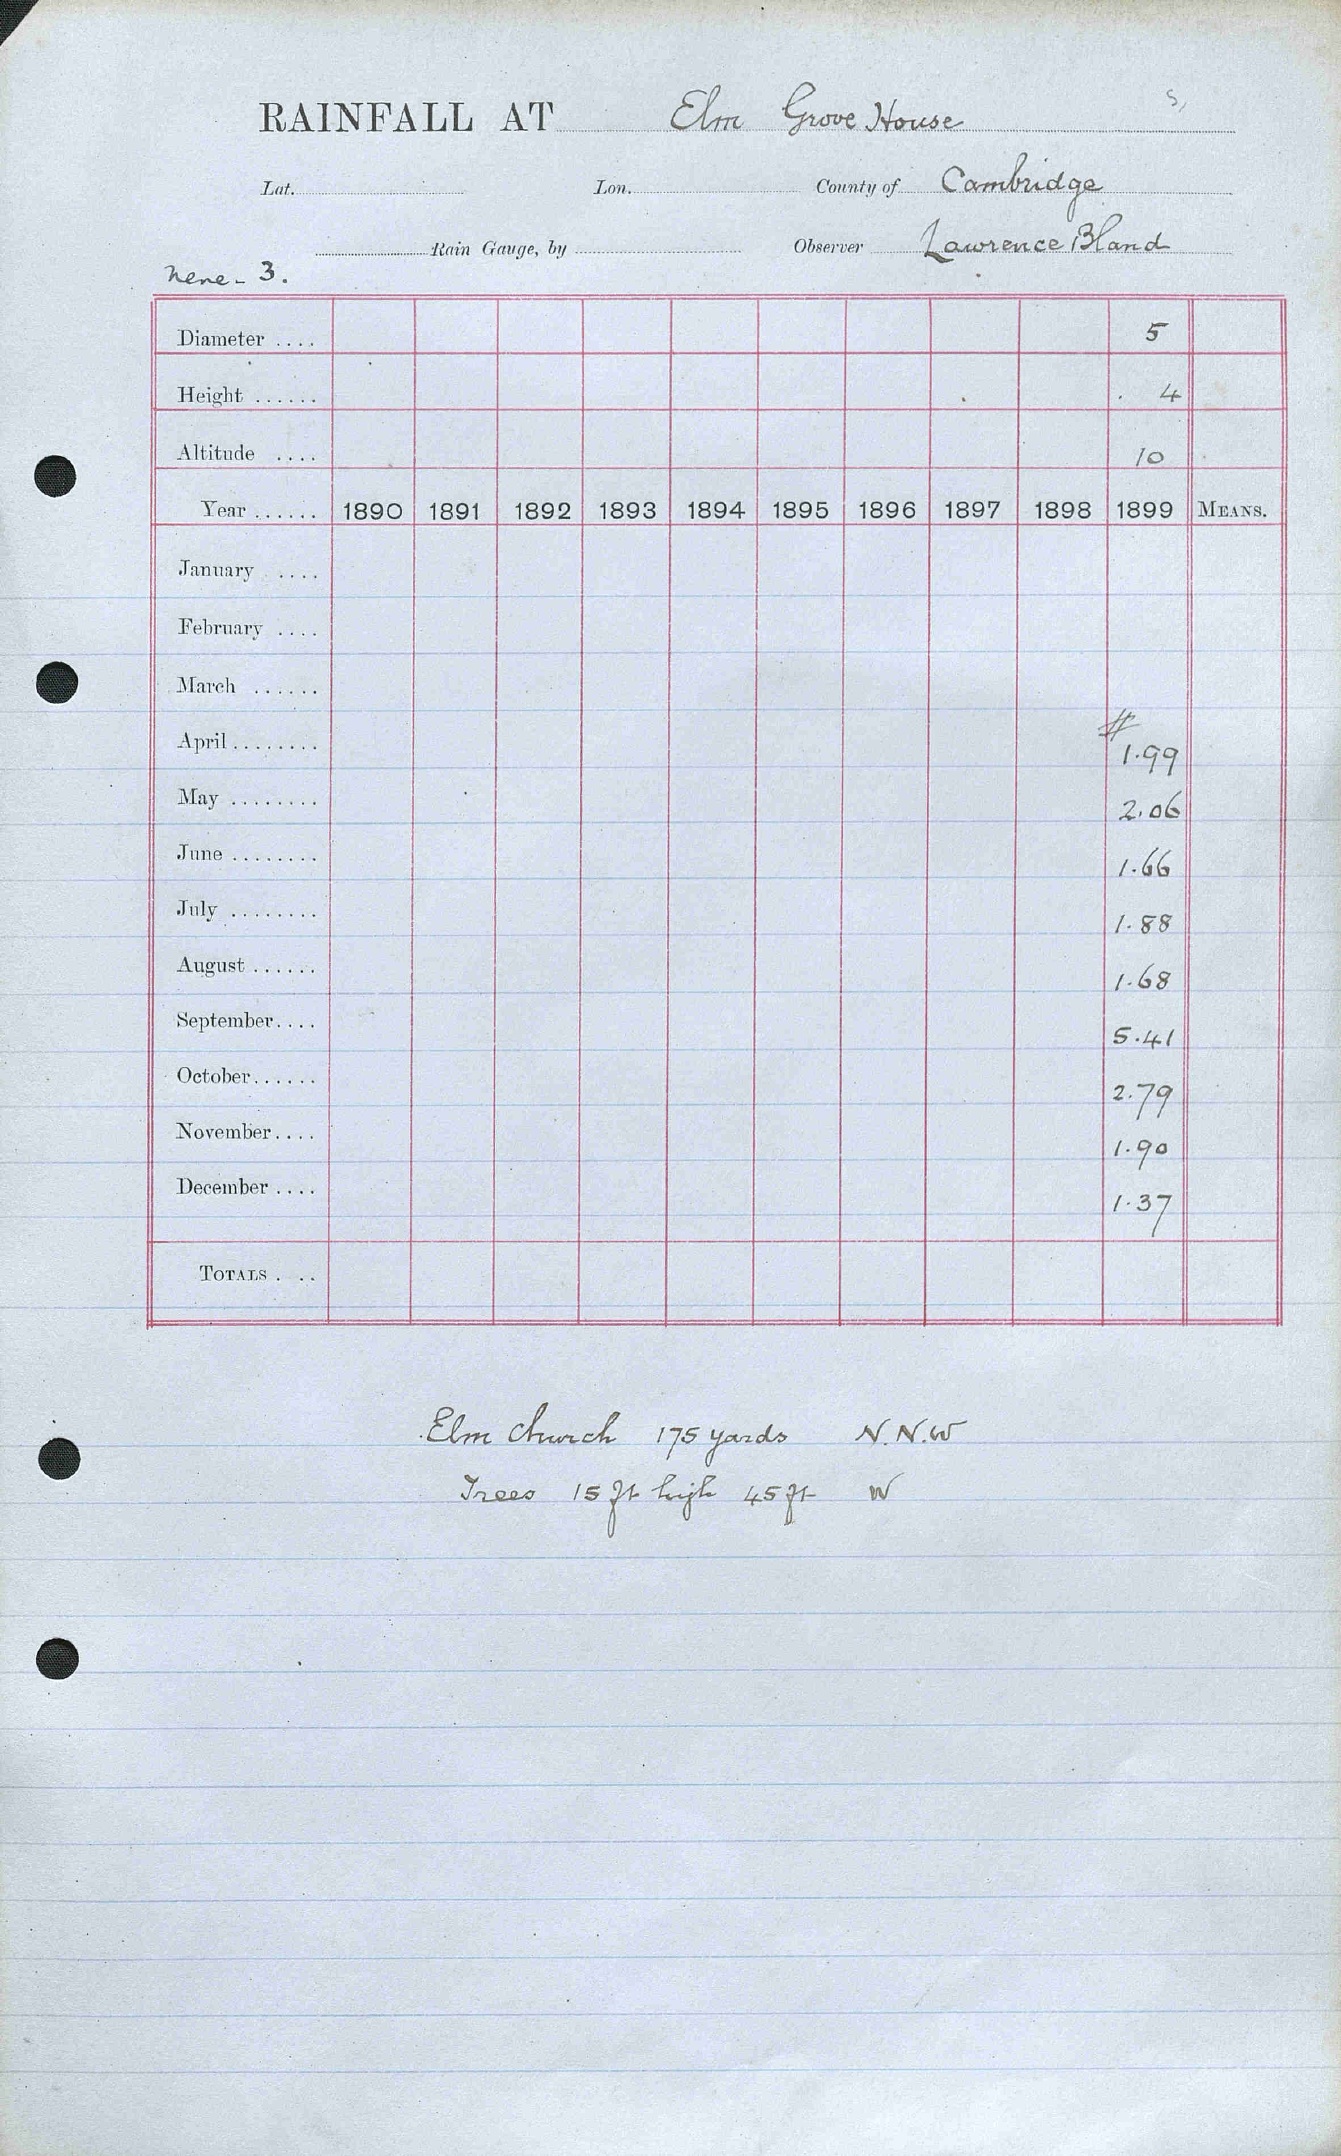 S,
RAINFALL AT Elm Grove House
Lat. Lon. County of Cambridge
Rain Gauge, by Observer Lawrence Bland
Nene - 3.
Diameter .... 5
Height ...... 4
Altitude .... 10
Year ...... 1890 1891 1892 1893 1894 1895 1896 1897 1898 1899 MEANS.
January ....
February ....
March ......
#
April ........ 1.99
May ........ 2.06
June ........ 1.66
July ........ 1.88
August ...... 1.68
September .... 5.41
October ...... 2.79
November .... 1.90
December .... 1.37
TOTALS . ..
Elm Church 175 yards N.N.W
Trees 15 ft high 45 ft W